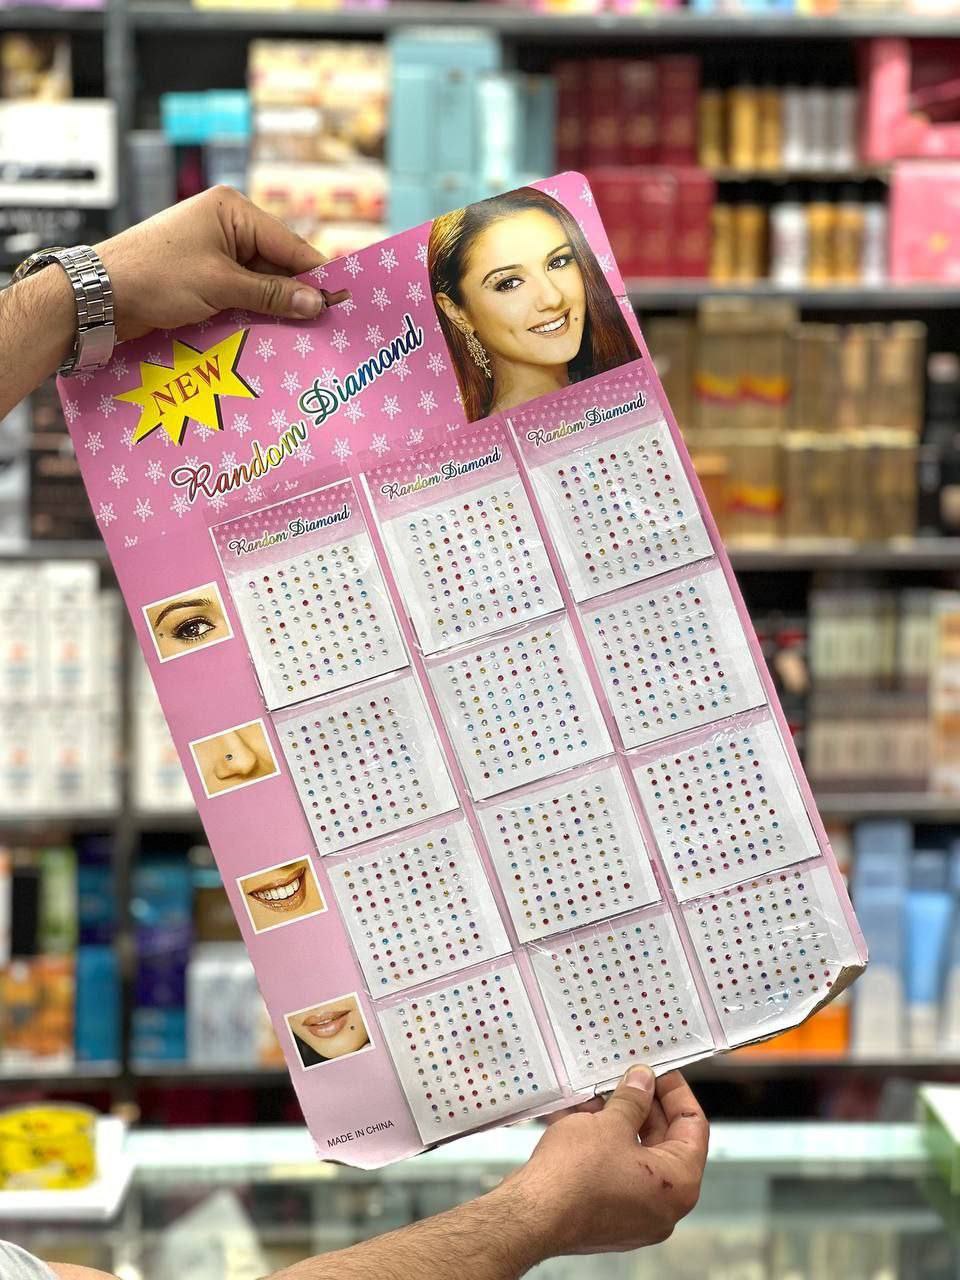 NEW
Random Diamond
Random Diamond
Random Diamond
Random Diamond
MADE IN CHINA